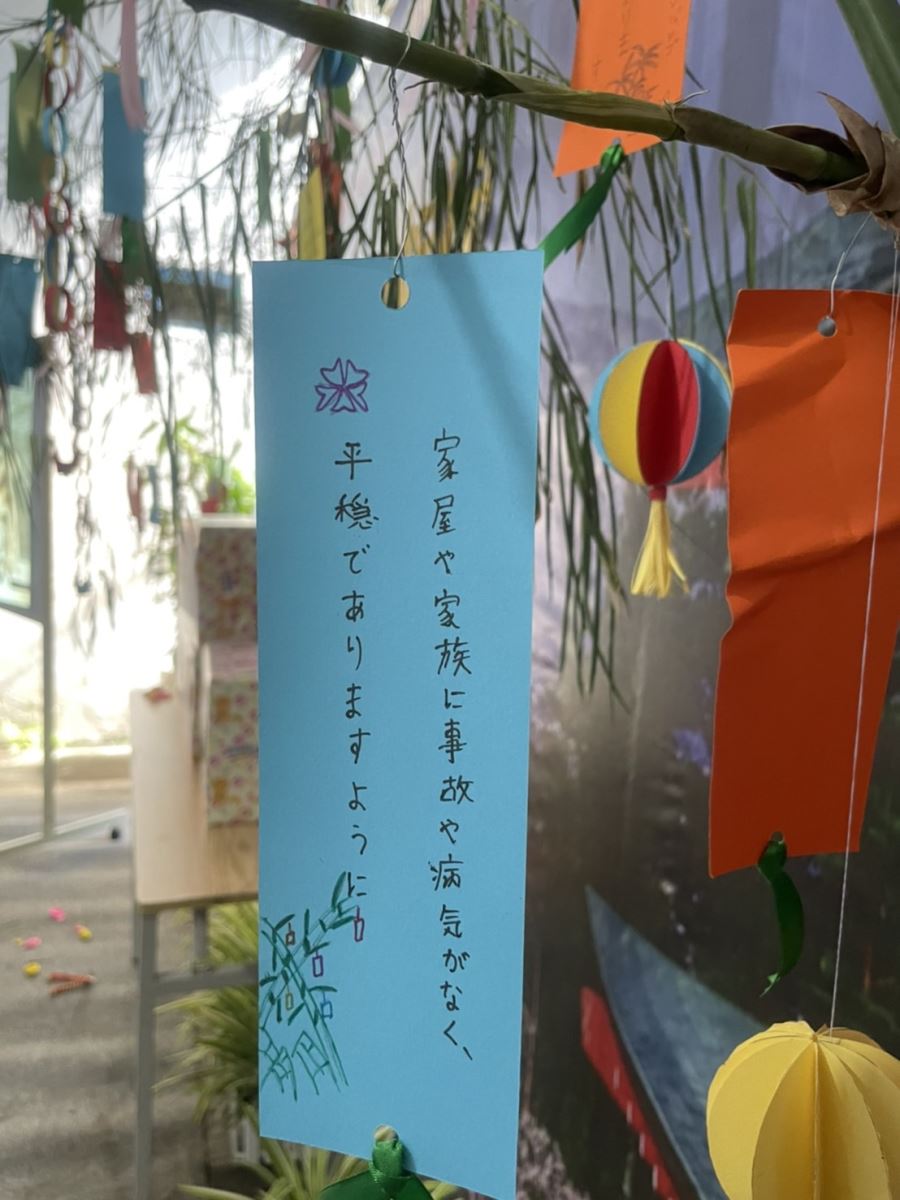 家屋や家族に事故や病気がなく、
平穏でありますように